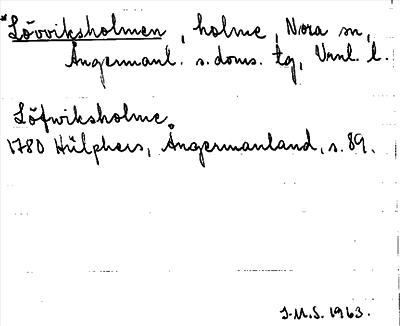 *Lövviksholmen, holme, Nora sn,
Ångermanl. s. doms. tg, Vnnl. l.
Löfwiksholme.
1780 Hülphers, Ångermanland, s. 89.
J.M.S. 1963.